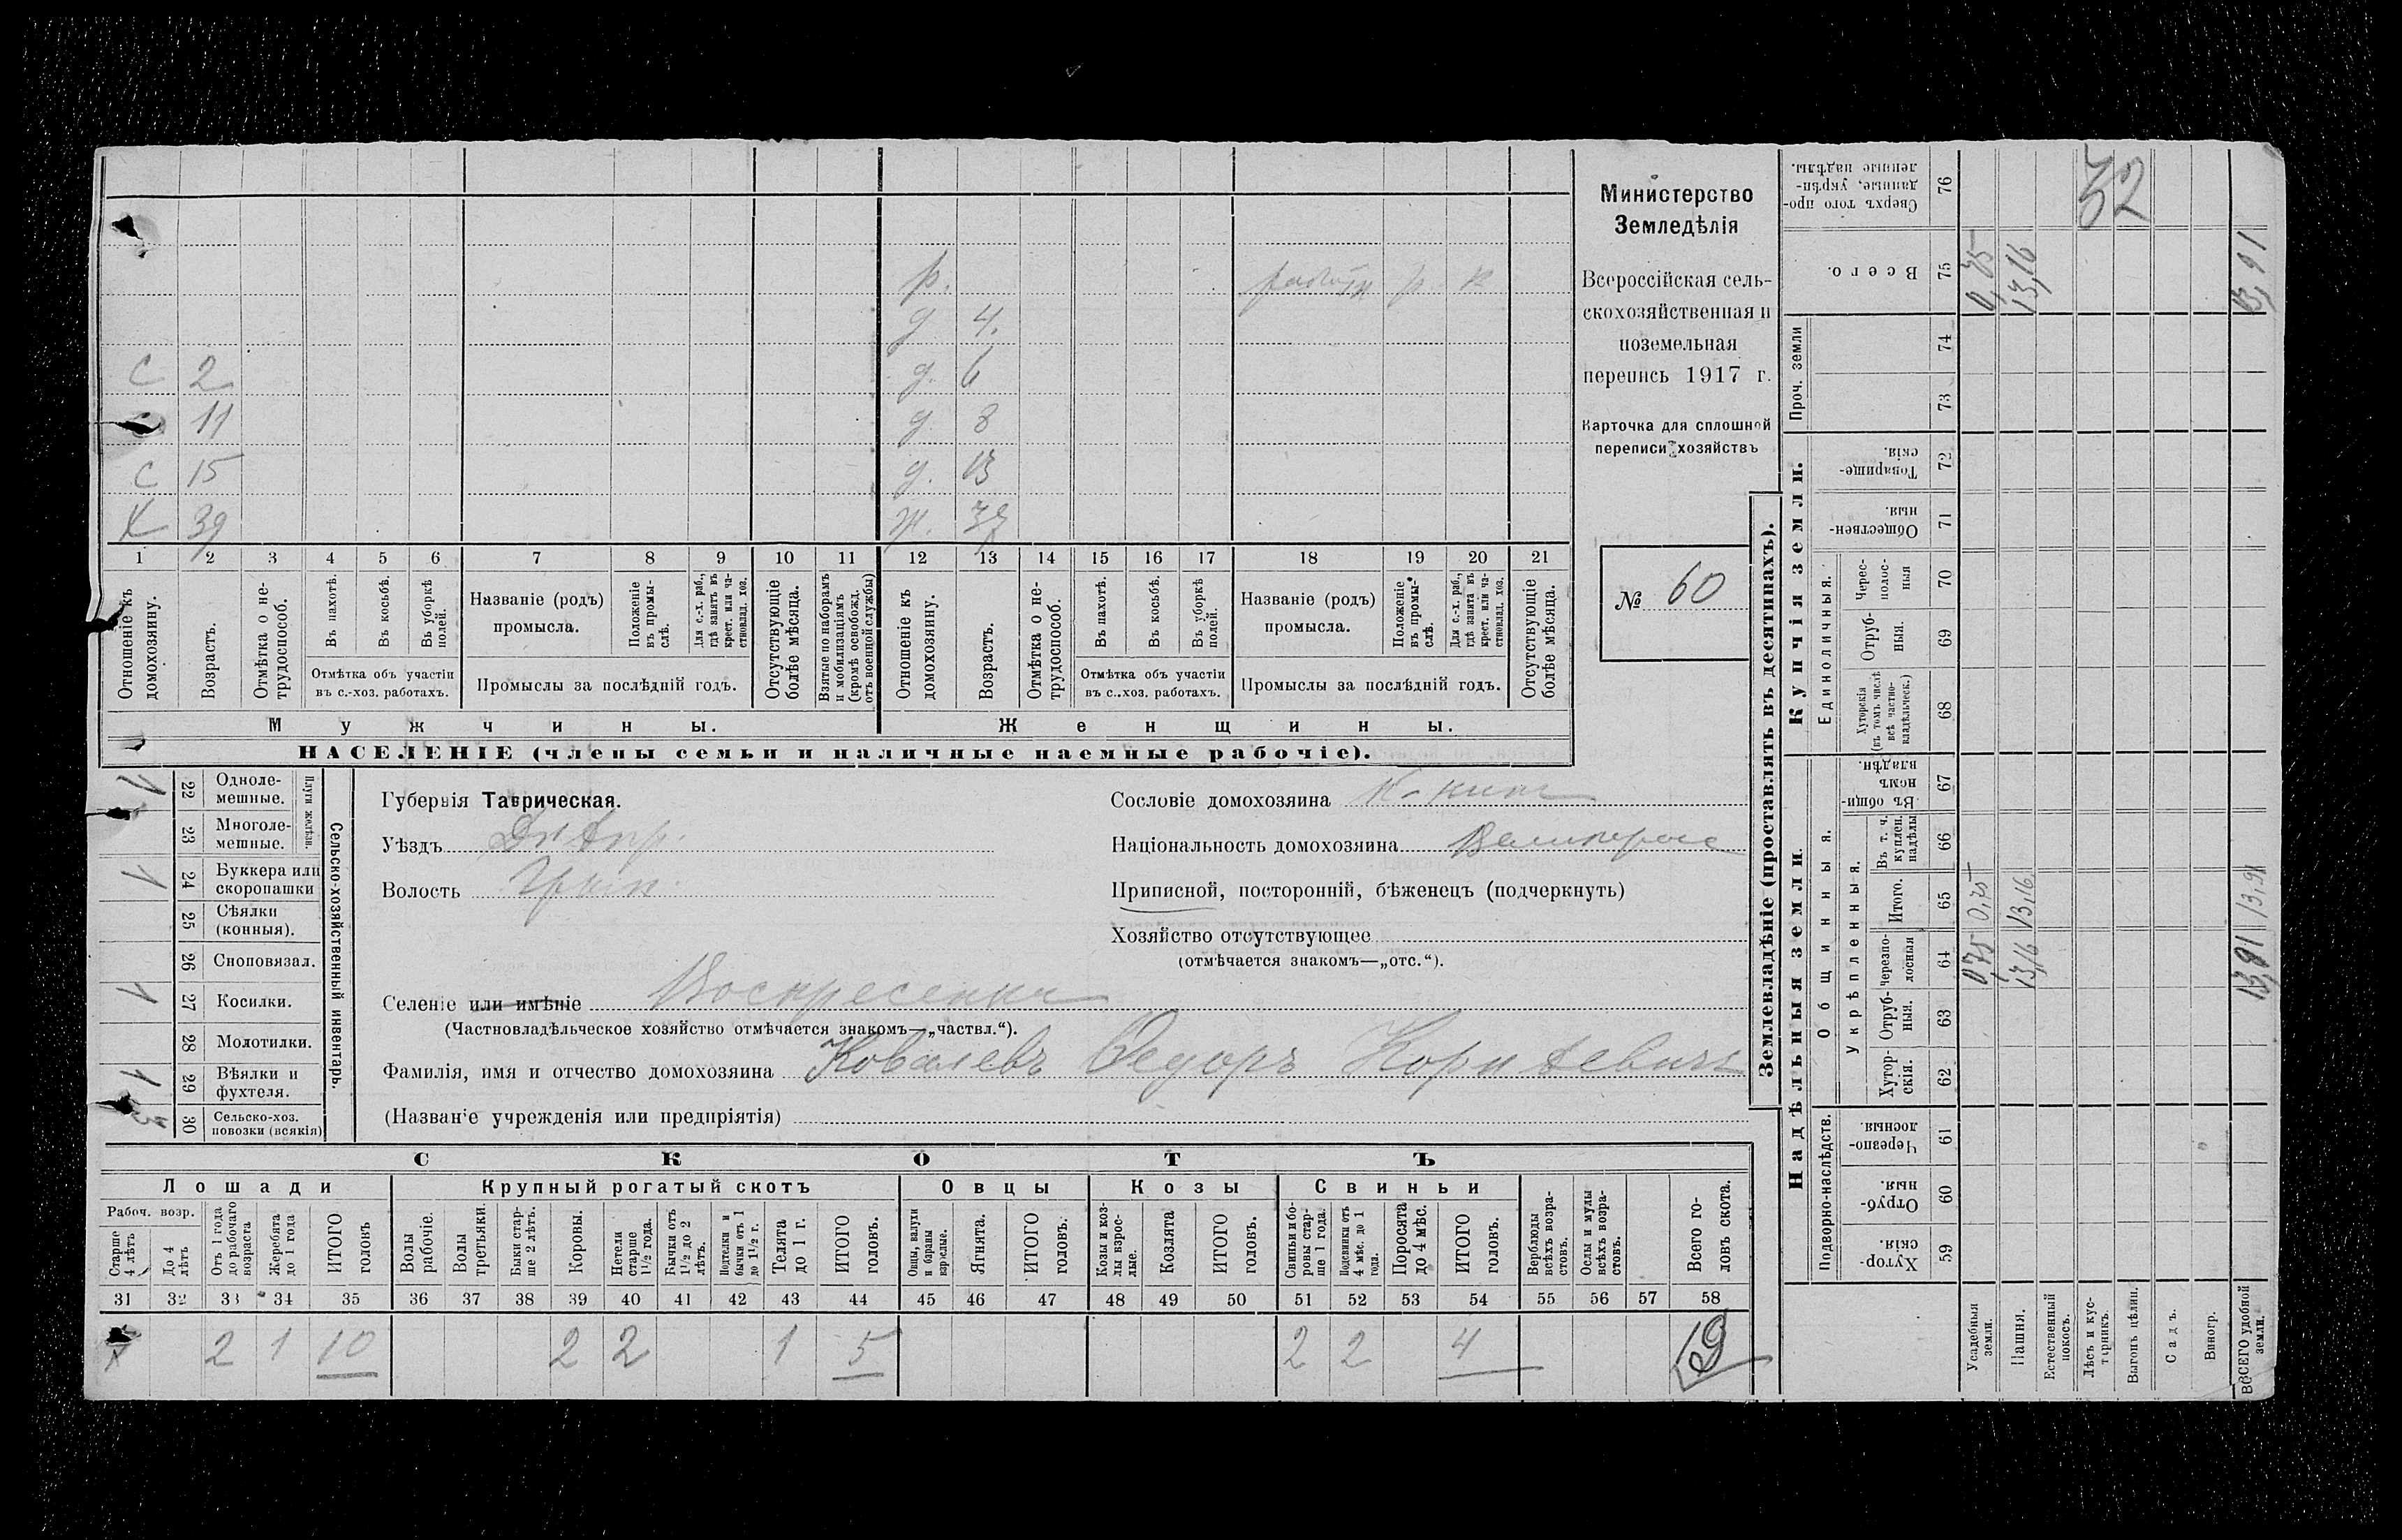 Министерство
Земледѣлія
Всероссійская сель-
скохозяйственная и
поземельная
перепись 1917 г.
Карточка для сплошной
переписи хозяйствъ
№ 60
р.
д 4.
С 2 д. 6
с 11 д. 8
С 15 д. 13
Х 39 ж.
1 2 3 4 5 6 7 8 9 10 11 12 13 14 15 16 17 18 19 20 21
Отношеніе къ домохозяину.
Возрастъ.
Отмѣтка о не-трудоспособ.
Въ пахотѣ.
Въ косьбѣ.
Въ уборкѣ полей.
Отмѣтка объ участіи
въ с.-хоз. работахъ.
Названіе (родъ)
промысла.
Положеніе въ промы-слѣ.
Для с.-х. раб., гдѣ занятъ въ крест. или ча-стновлад. хоз.
Промыслы за послѣдній годъ.
Отсутствующіе болѣе мѣсяца.
Взятые по наборамъ и мобилизаціямъ (кромѣ освобожд. отъ военной службы)
Отношеніе къ домохозяину.
Возрастъ.
Отмѣтка о не-трудоспособ.
Въ пахотѣ.
Въ косьбѣ.
Въ уборкѣ полей.
Отмѣтка объ участіи
въ с..хоз. работахъ.
Названіе (родъ)
промысла.
Положеніе въ промы-слѣ.
Для с.-х. раб., гдѣ занята въ крест. или ча-стновлад. хоз.
Промыслы за послѣдній годъ.
Отсутствующіе болѣе мѣсяца.
Мужчины.
Женщины.
НАСЕЛЕНІЕ (члены семьи и наличные наемные рабочіе).
Сельско-хозяйственный инвентарь.
Плуги желѣзн.
1 22 Одноле-мешные.
23 Многоле-мешные.
1 24 Буккера или скоропашки
25 Сѣялки (конныя).
26 Сноповязал.
1 27 Косилки.
28 Молотилки.
1 29 Вѣялки и фухтеля.
3 30 Сельско-хоз. повозки (всякія)
Губернія Таврическая.
Уѣздъ Днѣпр.
Волость
Селеніе или имѣніе Воскресенка
(Частновладѣльческое хозяйство отмѣчается знакомъ—„частвл.“).
Фамилія, имя и отчество домохозяина Ковалевъ Ѳедоръ Корнѣевичъ
(Названіе учрежденія или предпріятія)
Сословіе домохозяина
Національность домохозяина Великорос
Приписной, посторонній, бѣженецъ (подчеркнуть)
Хозяйство отсутствующее
(отмѣчается знакомъ—„отс.“).
СКОТЪ
Лошади Крупный рогатый скотъ Овцы Козы Свиньи
Рабоч. возр.
Старше 4 лѣтъ
До 4 лѣтъ
Отъ 1 года до рабочаго возраста
Жеребята до 1 года
ИТОГО головъ
Волы рабочіе.
Волы третьяки.
Быки стар-ше 2 лѣтъ.
Коровы.
Нетели старше 1½ года.
Бычки отъ 1½ до 2 лѣтъ.
Подтелки и бычки отъ 1 до 1½ г.
Телята до 1 г.
ИТОГО головъ.
Овцы, валухи и бараны взрослые.
Ягнята.
ИТОГО головъ.
Козы и коз-лы взрос-лые.
Козлята
ИТОГО головъ.
Свиньи и бо-ровы стар-ше 1 года.
Подсвинки отъ 4 мѣс. до 1 года.
Поросята до 4 мѣс.
ИТОГО головъ.
Верблюды всѣхъ возра-стовъ.
Ослы и мулы всѣхъ возра-стовъ.
Всего го-ловъ скота.
31 32 33 34 35 36 37 38 39 40 41 42 43 44 45 46 47 48 49 50 51 52 53 54 55 56 57 58
7 2 1 10 2 2 1 5 2 2 4 19
Землевладѣніе (проставлять въ десятинахъ).
Надѣльныя земли.
Подворно-наслѣдств.
Хутор-скія. 59
Отруб-ныя. 60
Черезпо-лосныя 61
Общинныя.
Укрѣпленныя.
Хутор-скія. 62
Отруб-ныя. 63
черезпо-лосныя 64
Итого. 65
Въ т. ч. куплен. надѣлы 66
Въ общи-номъ владѣн. 67
Купчія земли.
Единоличныя.
Хуторскія (въ томъ числѣ всѣ частно-владѣльческ.) 68
Отруб-ныя. 69
Черес-полос-ныя 70
Обществен-ныя. 71
Товарище-скія. 72
Проч. земли
73
74
Всего. 75
Сверхъ того про-данные, укрѣп-ленные надѣлы. 76
Усадебныя земли. 075 0,75 0,75
Пашня. 13,16 13,16 13,16
Естественный покосъ.
Лѣсъ и кус-тарникъ.
Выгонъ цѣлин.
Садъ.
Виногр.
ВСЕГО удобной земли. 13,91 13,91 13,91
52